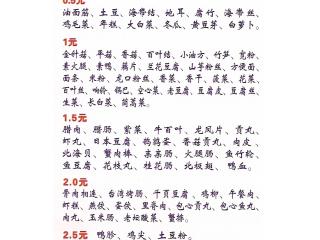 0.5元
油面筋、土豆、海带结、地耳、腐竹、海带丝、
鸡毛菜、年糕、大白菜、冬瓜、黄豆芽、白萝卜。
1元
金针菇、平菇、香菇、百叶结、小油方、竹笋、宽粉、
素火腿、素鸭、藕片、兰花豆腐、山芋粉丝、方便面、
面条、米粉、龙口粉丝、香菜、香干、菠菜、花菜、
百叶丝、响铃、锅巴、空心菜、老豆腐、豆腐皮、豆腐丝、
生菜、长白菜、茼蒿菜。
1.5元
腊肉、腊肠、紫菜、牛百叶、龙凤片、贡丸、
虾丸、日本豆腐、鹌鹑蛋、香菇贡丸、肉皮、
北海贝、蟹肉棒、亲亲肠、火腿肠、鱼竹轮、
鱼豆腐、花枝丸、桂花肠、北极翅、鸭血。
2.0元
骨肉相连、台湾烤肠、千页豆腐、鸡柳、午餐肉、
虾糕、燕饺、蛋饺、里脊肉、包心贡丸、包心鱼丸、
肉丸、玉米肠、老坛酸菜、蟹排。
2.5元 鸭胗、鸡尖、土豆粉。